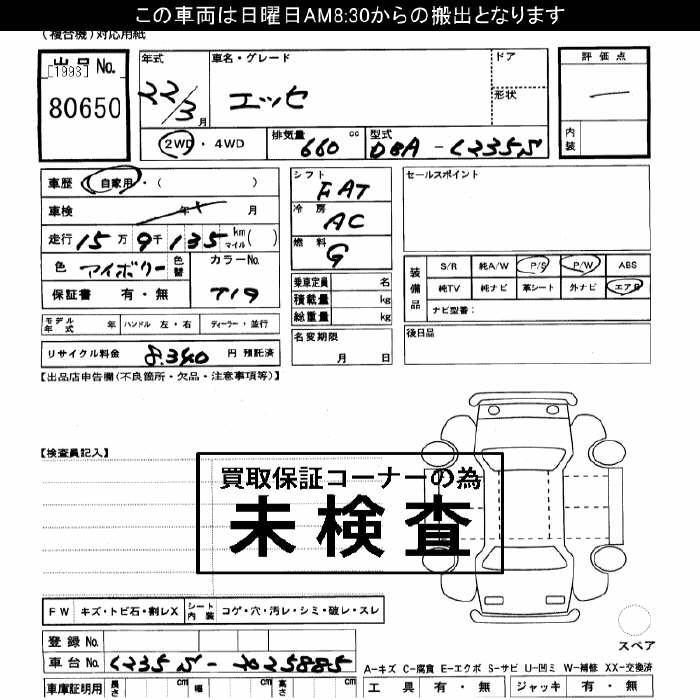 この車両は日曜日AM8:30からの搬出となります
(複合機)対応用紙
出品No.
[1993]
80650
年式
22/3月
車名・グレード
エッセ
ドア
形状
2WD・4WD
排気量 660 cc
型式 DBA-L235S
評価点
内装
車歴 自家用・( )
車検 年 月
走行 15万9千135 km マイル( )
色 アイボリー 色替
カラーNo. T19
保証書 有・無
シフト FAT
冷房 AC
燃料 G
乗車定員 名
積載量 kg
総重量 kg
セールスポイント
装備品
S/R 純A/W P/S P/W ABS
純TV 純ナビ 革シート 外ナビ エアB
ナビ型番:
モデル年式 年 ハンドル 左・右 ディーラー・並行
名変期限 月 日
後日品
リサイクル料金 8,340 円 預託済
【出品店申告欄(不良箇所・欠品・注意事項等)】
【検査員記入】
買取保証コーナーの為
未検査
FW キズ・トビ石・割レX シート内装 コゲ・穴・汚レ・シミ・破レ・スレ
スペア
登録No.
車台No. L235S-2025885
A-キズ C-腐食 E-エクボ S-サビ U-凹ミ W-補修 XX-交換済
車庫証明用 長さ cm 幅 cm 高さ cm
工具 有・無 ジャッキ 有・無